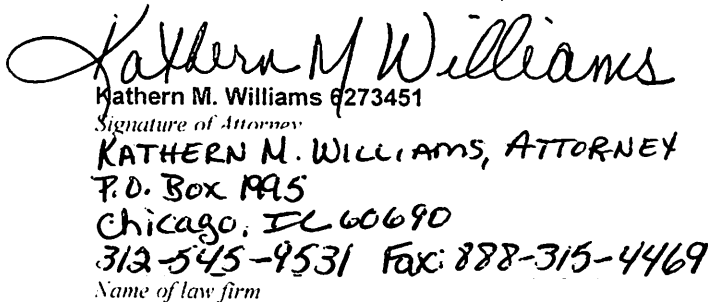 Kathern M Williams
Kathern M. Williams 6273451
Signature of Attorney
KATHERN M. WILLIAMS, ATTORNEY
P.O. Box 1995
Chicago, IL 60690
312-545-9531 Fax: 888-315-4469
Name of law firm